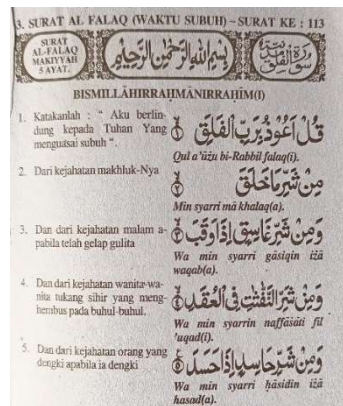 3. SURAT AL FALAQ (WAKTU SUBUH) – SURAT KE : 113
SURAT
AL-FALAQ
MAKIYYAH
5 AYAT.
بِسْمِ اللهِ الرَّحْمٰنِ الرَّحِيْمِ
سورة الفلق
BISMILLÂHIRRAHMÂNIRRAHÎM(I)
1. Katakanlah : " Aku berlin-
dung kepada Tuhan Yang
menguasai subuh ".
قُلْ اَعُوْذُ بِرَبِّ الْفَلَقِ ۝١
Qul a'ûżu bi-Rabbil falaq(i).
2. Dari kejahatan makhluk-Nya
مِنْ شَرِّ مَا خَلَقَ ۝٢
Min syarri mâ khalaq(a).
3. Dan dari kejahatan malam a-
pabila telah gelap gulita
وَمِنْ شَرِّ غَاسِقٍ اِذَا وَقَبَ ۝٣
Wa min syarri gâsiqin iżâ
waqab(a).
4. Dan dari kejahatan wanita-wa-
nita tukang sihir yang meng-
hembus pada buhul-buhul.
وَمِنْ شَرِّ النَّفّٰثٰتِ فِى الْعُقَدِ ۝٤
Wa min syarrin naffâsâti fil
'uqad(i).
5. Dan dari kejahatan orang yang
dengki apabila ia dengki
وَمِنْ شَرِّ حَاسِدٍ اِذَا حَسَدَ ۝٥
Wa min syarri ḥâsidin iżâ
ḥasad(a).